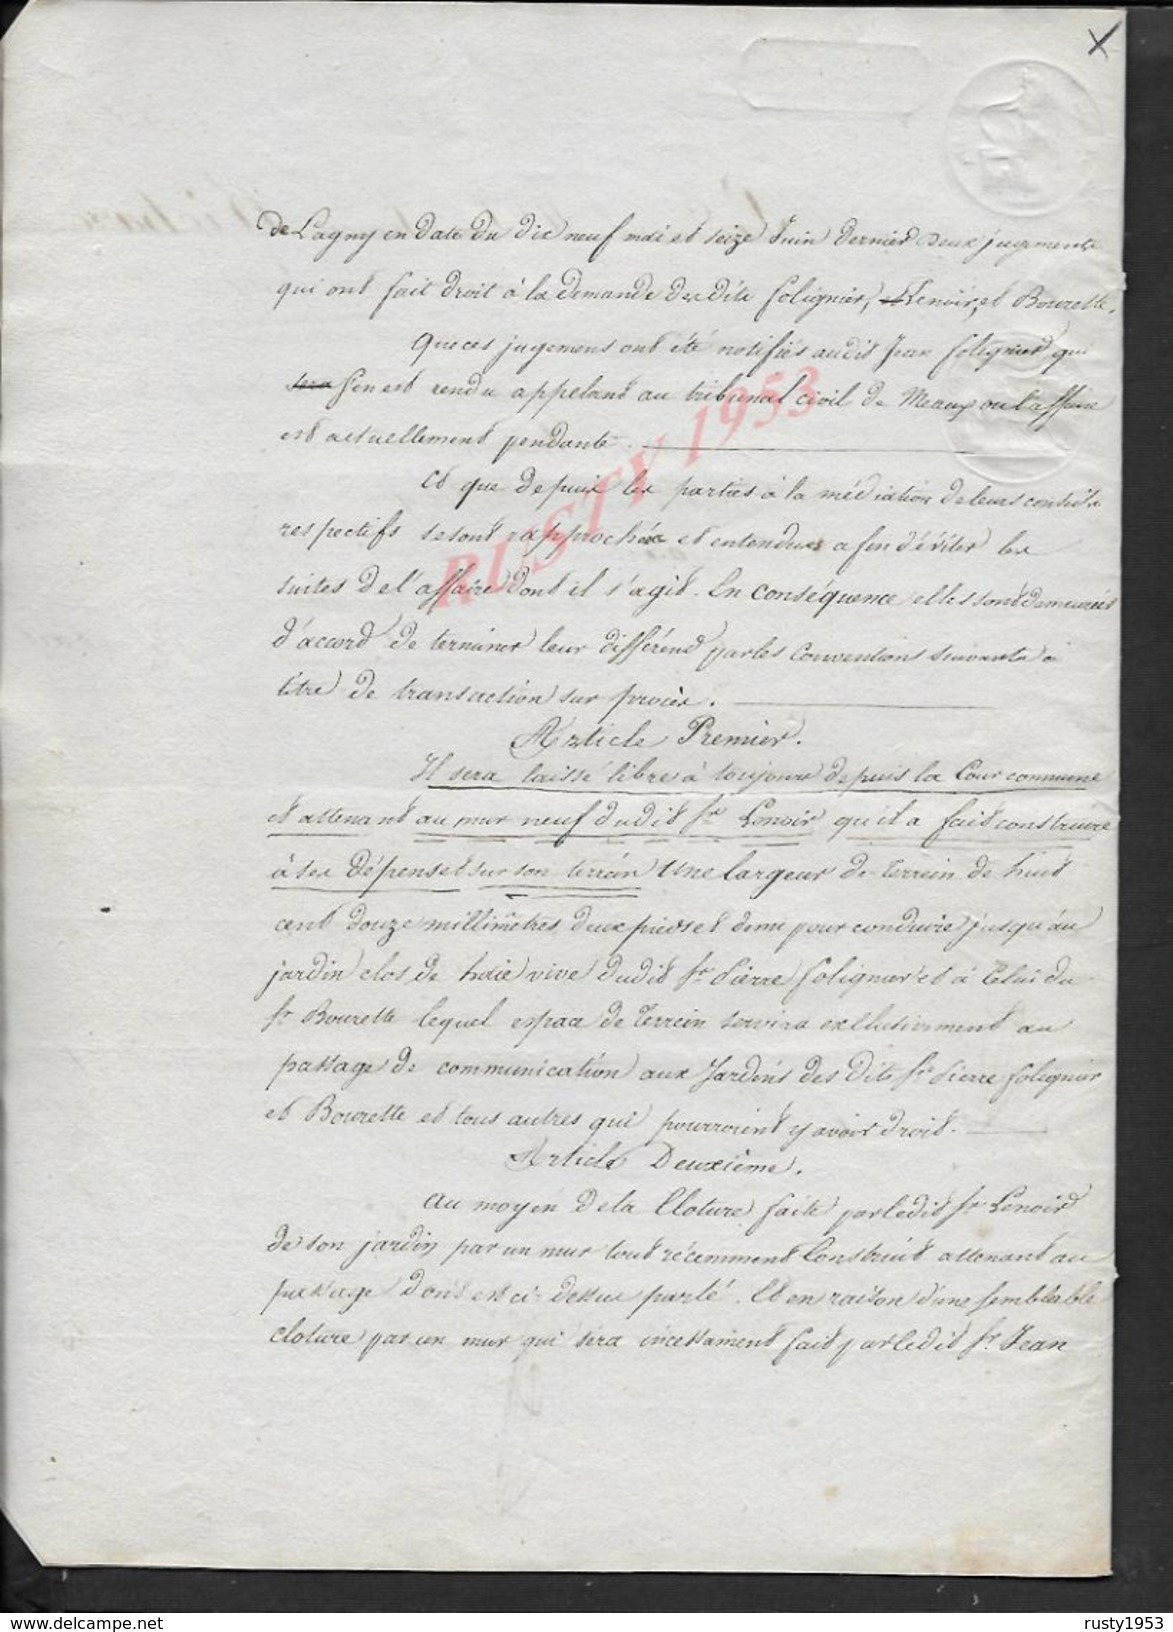 de Lagny en date du dix neuf mai et seize Juin dernier deux jugements
qui ont fait droit à la demande des dits Folignier, et Lenoir, et Bourette.
Que ces jugemens ont été notifiés audit Jean Folignier qui
sera s'en est rendu appelant au tribunal civil de Meaux ou l'affaire
est actuellement pendante.
Et que depuis les parties à la médiation de leurs conseils
respectifs se sont rapprochées et entendues afin d'éviter les
suites de l'affaire dont il s'agit. En conséquence elles sont demeurées
d'accord de terminer leur différend par les Conventions suivantes à
titre de transaction sur procès.
Article Premier.
Il sera laissé libre à toujours depuis la Cour commune
et attenant au mur neuf dudit Sr. Lenoir qu'il a fait construire
à ses dépens et sur son terrein Une largeur de terrein de huit
cent douze millimètres, deux pieds et demi pour conduire jusqu'au
jardin clos de haie vive dudit Sr. Pierre Folignier et à Celui du
Sr. Bourette lequel espace de terrein servira exclusivement au
passage de communication aux Jardins des dits Sr. Pierre Folignier
et Bourette et tous autres qui pourroient y avoir droit.
Article Deuxième.
Au moyen de la Cloture faite par ledit Sr. Lenoir
de son jardin par un mur tout récemment Construit attenant au
passage dont est ci-dessus parlé. Et en raison d'une semblable
cloture par un mur qui sera incessament fait par ledit Sr. Jean
RUSTY 1953
rusty1953